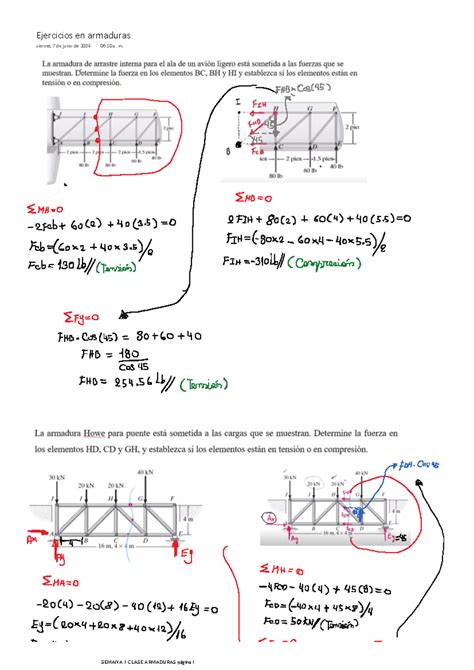 Ejercicios en armaduras
viernes, 7 de junio de 2024
La armadura de arrastre interna para el ala de un avión ligero está sometida a las fuerzas que se
muestran. Determine la fuerza en los elementos BC, BH y HI y establezca si los elementos están en
tensión o en compresión.
FHB×Cos(45)
I
H
G
F
2 pies
2 pies
1.5 pies
80 lb
60 lb
40 lb
I
FIH
H
G
F
FHB
45
45
2 pies
B
FCB
C
D
E
2 pies
1.5 pies
80 lb
60 lb
40 lb
ΣMH=0
-2Fcb+60(2)+40(3.5)=0
Fcb=(60x2+40x3.5)/2
Fcb=130lb// (Tensión)
ΣMB=0
2FIH+80(2)+60(4)+40(5.5)=0
FIH=(-80x2-60x4-40x5.5)/2
FIH=-310lb// (Compresión)
ΣFy=0
FHB·Cos(45) = 80+60+40
FHB = 180
Cos 45
FHB = 254.56 lb// (Tensión)
La armadura Howe para puente está sometida a las cargas que se muestran. Determine la fuerza en
los elementos HD, CD y GH, y establezca si los elementos están en tensión o en compresión.
30 kN
20 kN
20 kN
40 kN
J
I
H
G
F
4 m
A
B
C
D
E
16 m, 4 × 4 m
Ax
Ay
4
Ey
FDH·Cos45
30 kN
20 kN
20 kN
40 kN
J
I
H
G
F
4 m
Ax
B
C
D
16 m, 4 × 4 m
Ay
Ey=45
ΣMA=0
-20(4)-20(8)-40(12)+16Ey=0
Ey=(20x4+20x8+40x12)/16
ΣMH=0
-4FCD-40(4)+45(8)=0
FCD=(-40x4+45x8)/4
FCD=50kN// (Tensión)
SEMANA 1 CLASE ARMADURAS página 1